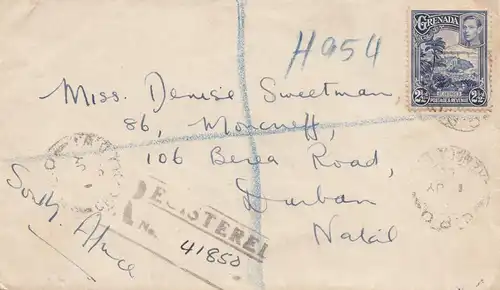 H954
GRENADA
ST. GEORGE'S
2½d
POSTAGE & REVENUE
2½d
Miss. Denise Sweetman
86, Moncreff,
106 Berea Road,
Durban
Natal
South Africa
REGISTERED
No.
41850